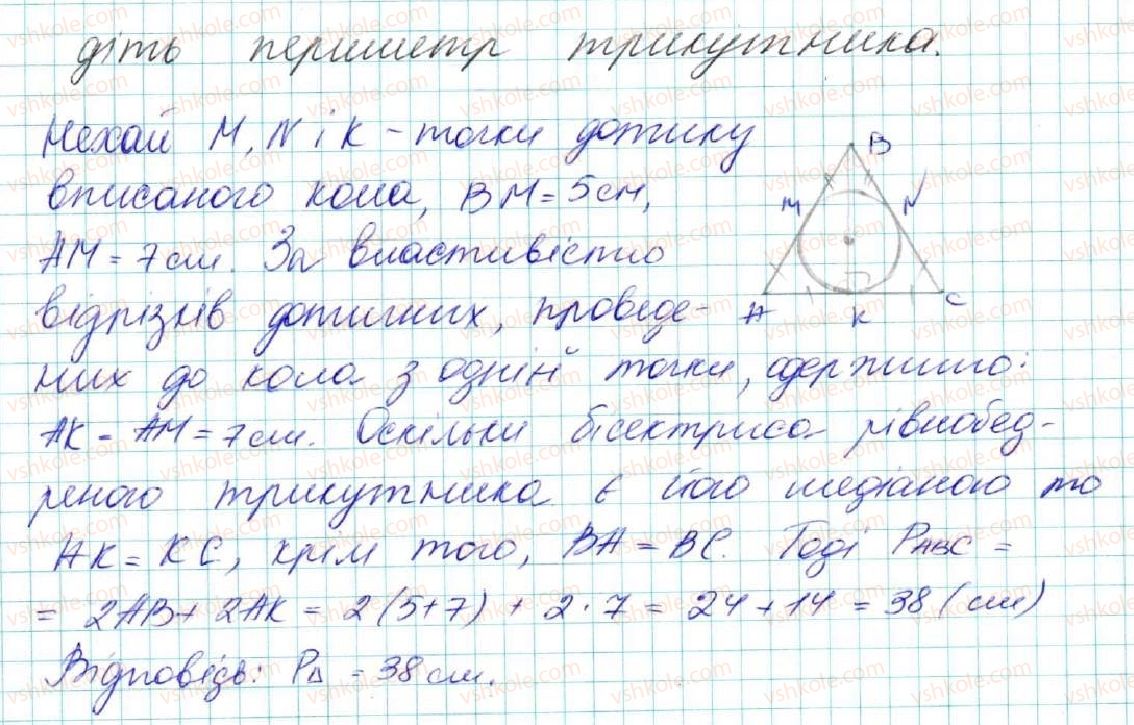 діть периметр трикутника.
Нехай M, N і K - точки дотику
вписаного кола, BM = 5 см,
AM = 7 см. За властивістю
відрізків дотичних, проведе-
них до кола з однієї точки, одержимо:
AK = AM = 7 см. Оскільки бісектриса рівнобед-
реного трикутника є його медіаною то
AK = KC, крім того, BA = BC. Тоді P ABC =
= 2AB + 2AK = 2(5+7) + 2·7 = 24 + 14 = 38 (см)
Відповідь: P∆ = 38 см.
B
M
N
A
K
C
vshkole.com